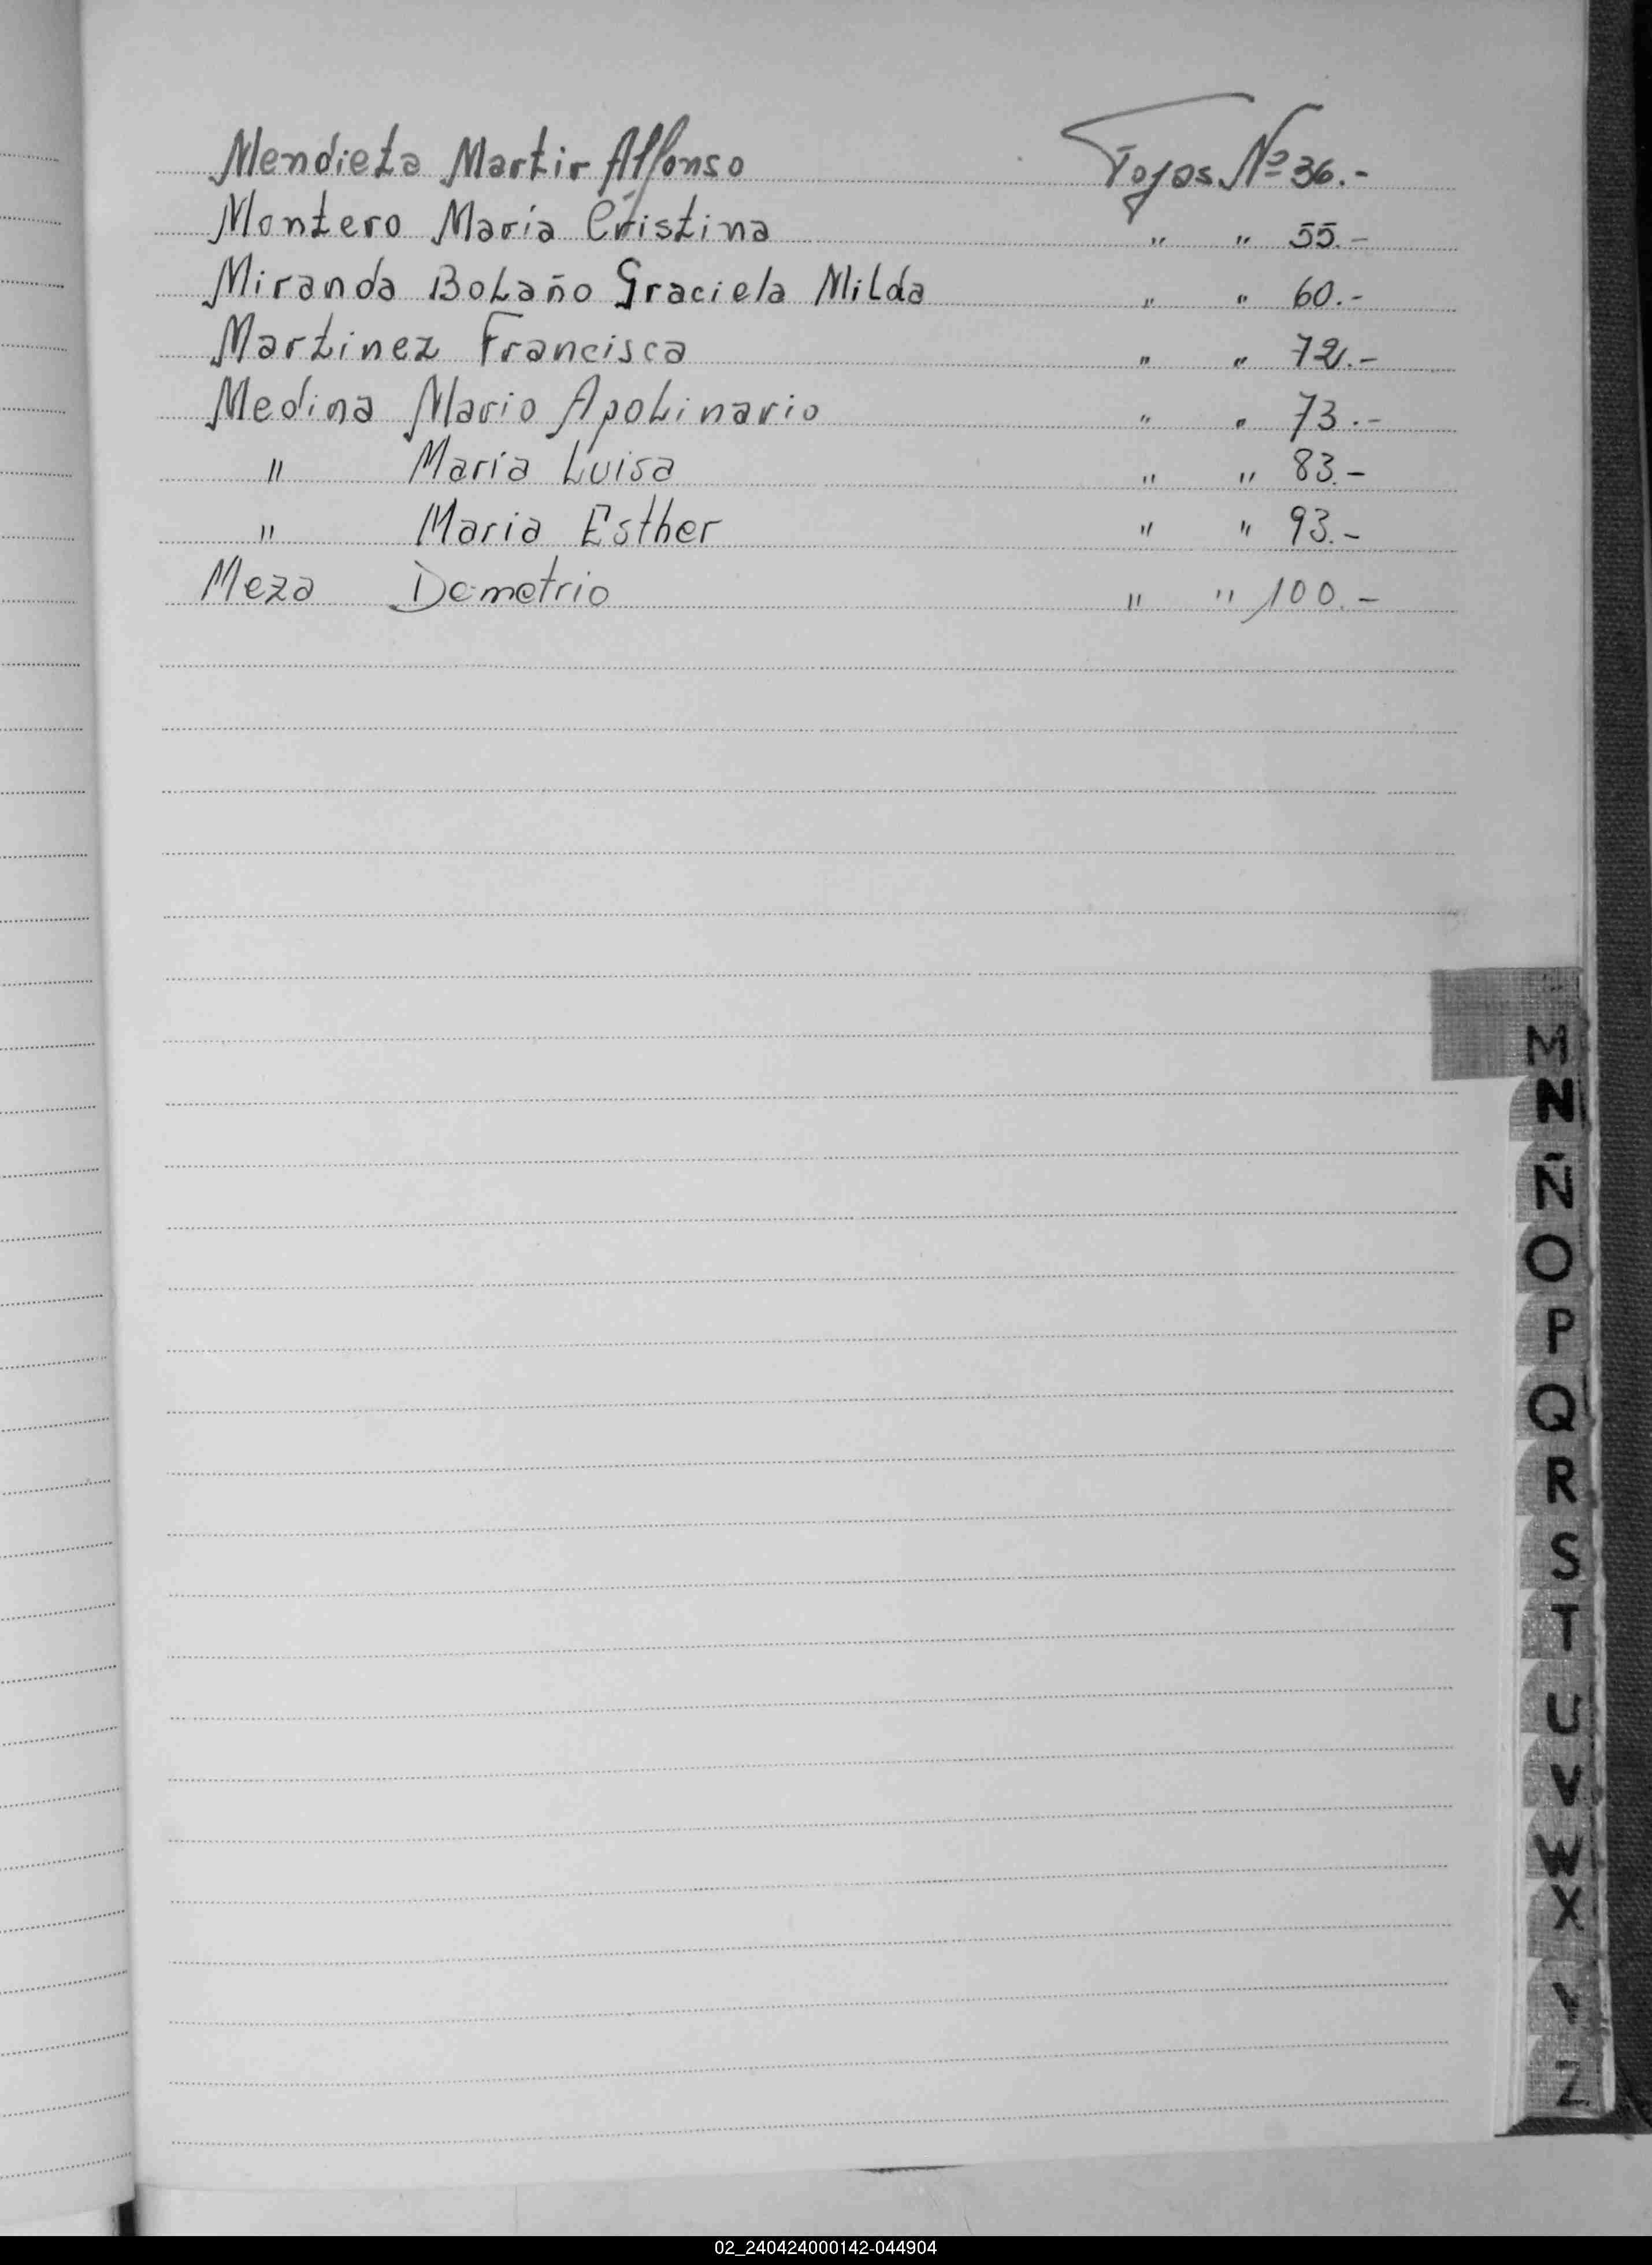 Mendieta Martir Alfonso Fojas Nº 36.-
Montero María Cristina " " 55.-
Miranda Bolaño Graciela Nilda " " 60.-
Martinez Francisca " " 72.-
Medina Mario Apolinario " " 73.-
" María Luisa " " 83.-
" Maria Esther " " 93.-
Meza Demetrio " " 100.-
M
N
Ñ
O
P
Q
R
S
T
U
V
W
X
Y
Z
02_240424000142-044904